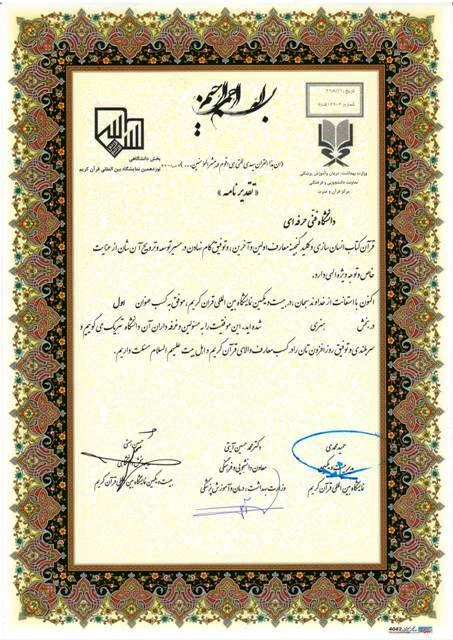 بسم الله الرحمن الرحیم
وزارت بهداشت، درمان و آموزش پزشکی
معاونت دانشجویی و فرهنگی
مرکز قرآن و عترت
بخش دانشگاهی
نوزدهمین نمایشگاه بین المللی قرآن کریم
«تقدیرنامه»
دانشگاه فنی حرفه ای
قرآن کتاب انسان سازی و کلید گنجینه معارف اولین و آخرین، و توفیق گام نهادن در مسیر توسعه و ترویج آن نشان از عنایت
خاص و توجه ویژه الهی دارد.
اکنون با استعانت از خداوند سبحان، در بیست و یکمین نمایشگاه بین المللی قرآن کریم، موفق به کسب عنوان اول
در بخش هنری شده اید. این موفقیت را به مسئولین و غرفه داران آن دانشگاه تبریک می گوییم و
سربلندی و توفیق روزافزون تان را در کسب معارف والای قرآن کریم و اهل بیت علیهم السلام مسئلت داریم.
حمید محمدی
نمایشگاه بین المللی قرآن کریم
دکتر محمد حسین آیتی
معاون دانشجویی و فرهنگی
وزارت بهداشت، درمان و آموزش پزشکی
بیست و یکمین نمایشگاه بین المللی قرآن کریم
4042